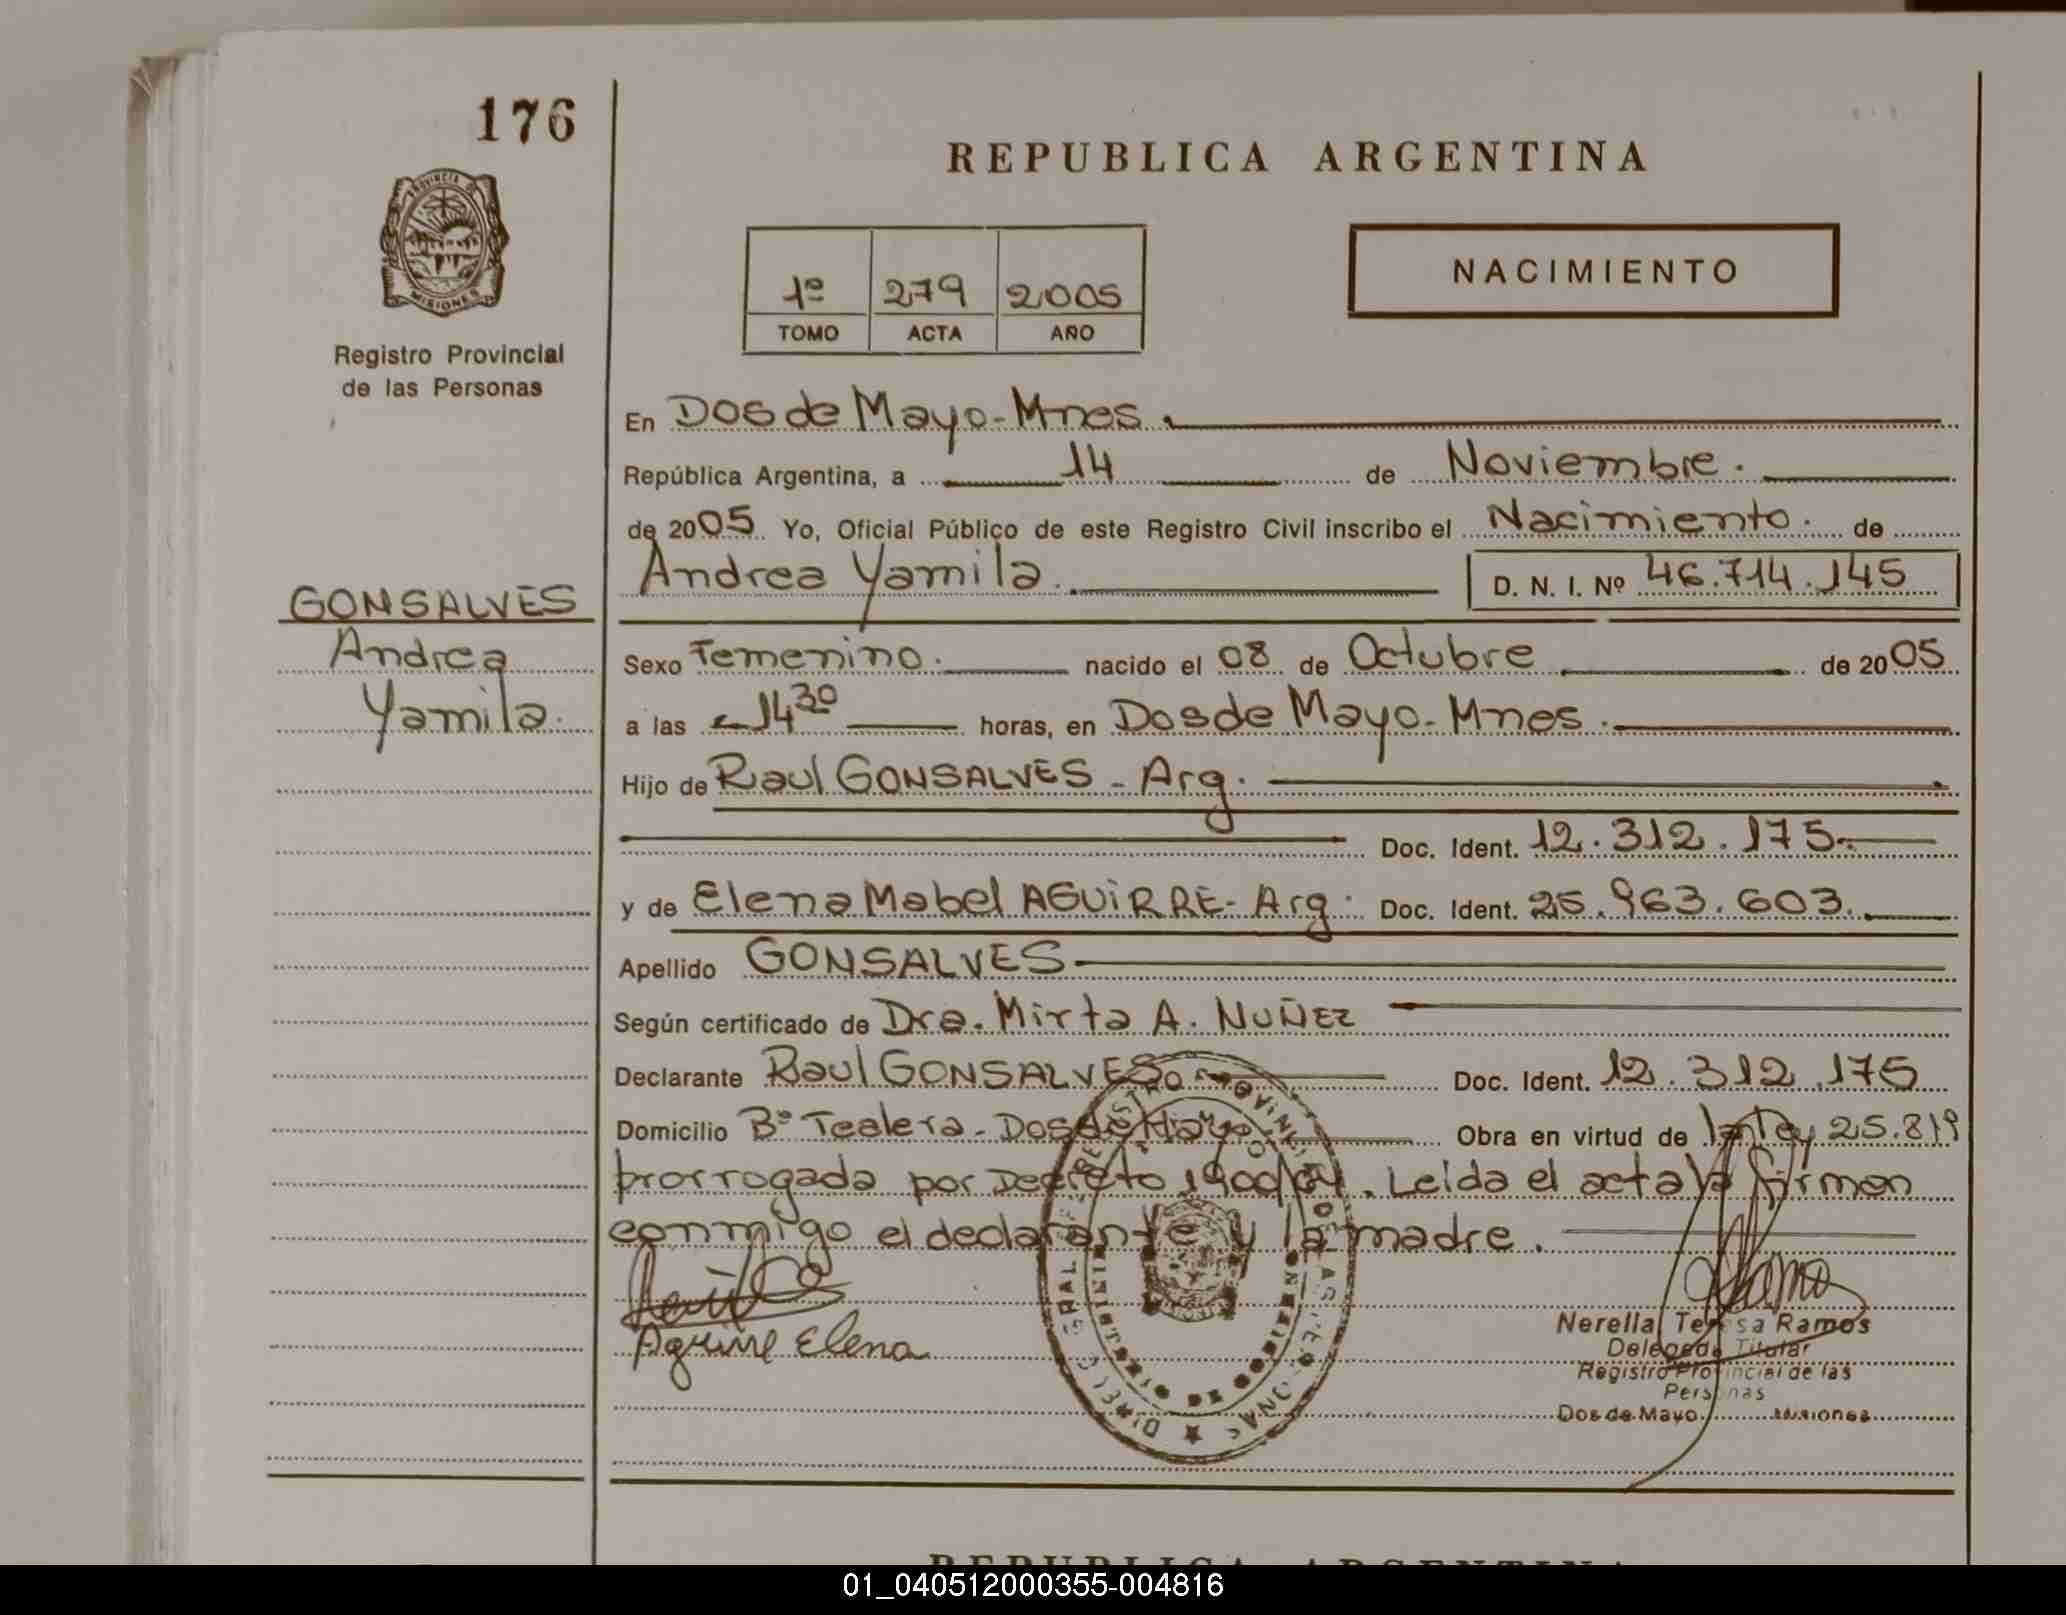 176
REPUBLICA ARGENTINA
PROVINCIA DE
MISIONES
Registro Provincial
de las Personas
1º 279 2005
TOMO ACTA AÑO
NACIMIENTO
En Dos de Mayo - Mnes.
República Argentina, a 14 de Noviembre.
de 2005 Yo, Oficial Público de este Registro Civil inscribo el Nacimiento. de
Andrea Yamila. D. N. I. Nº 46.714.145
GONSALVES
Andrea
Yamila.
Sexo Femenino. nacido el 08 de Octubre de 2005
a las 14 30 horas, en Dos de Mayo - Mnes.
Hijo de Raul GONSALVES - Arg.
Doc. Ident. 12.312.175.
y de Elena Mabel AGUiRRE - Arg. Doc. Ident. 25.963.603.
Apellido GONSALVES
Según certificado de Dra. Mirta A. NUÑEZ
Declarante Raul GONSALVES Doc. Ident. 12.312.175
Domicilio Bº Tealera - Dos de Mayo Obra en virtud de la Ley 25.819
prorrogada por Decreto 1900/04. Leida el acta la firman
conmigo el declarante y la madre.
Aguirre Elena
Nerella Teresa Ramos
Delegada Titular
Registro Provincial de las
Personas
Dos de Mayo Misiones
REPUBLICA ARGENTINA
01_040512000355-004816